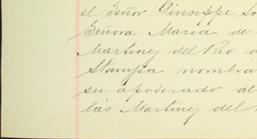 el Señor Giuseppe So
Señora Maria de
Martinez del Rio a
Stampa nombra
su apoderado al
las Martinez del